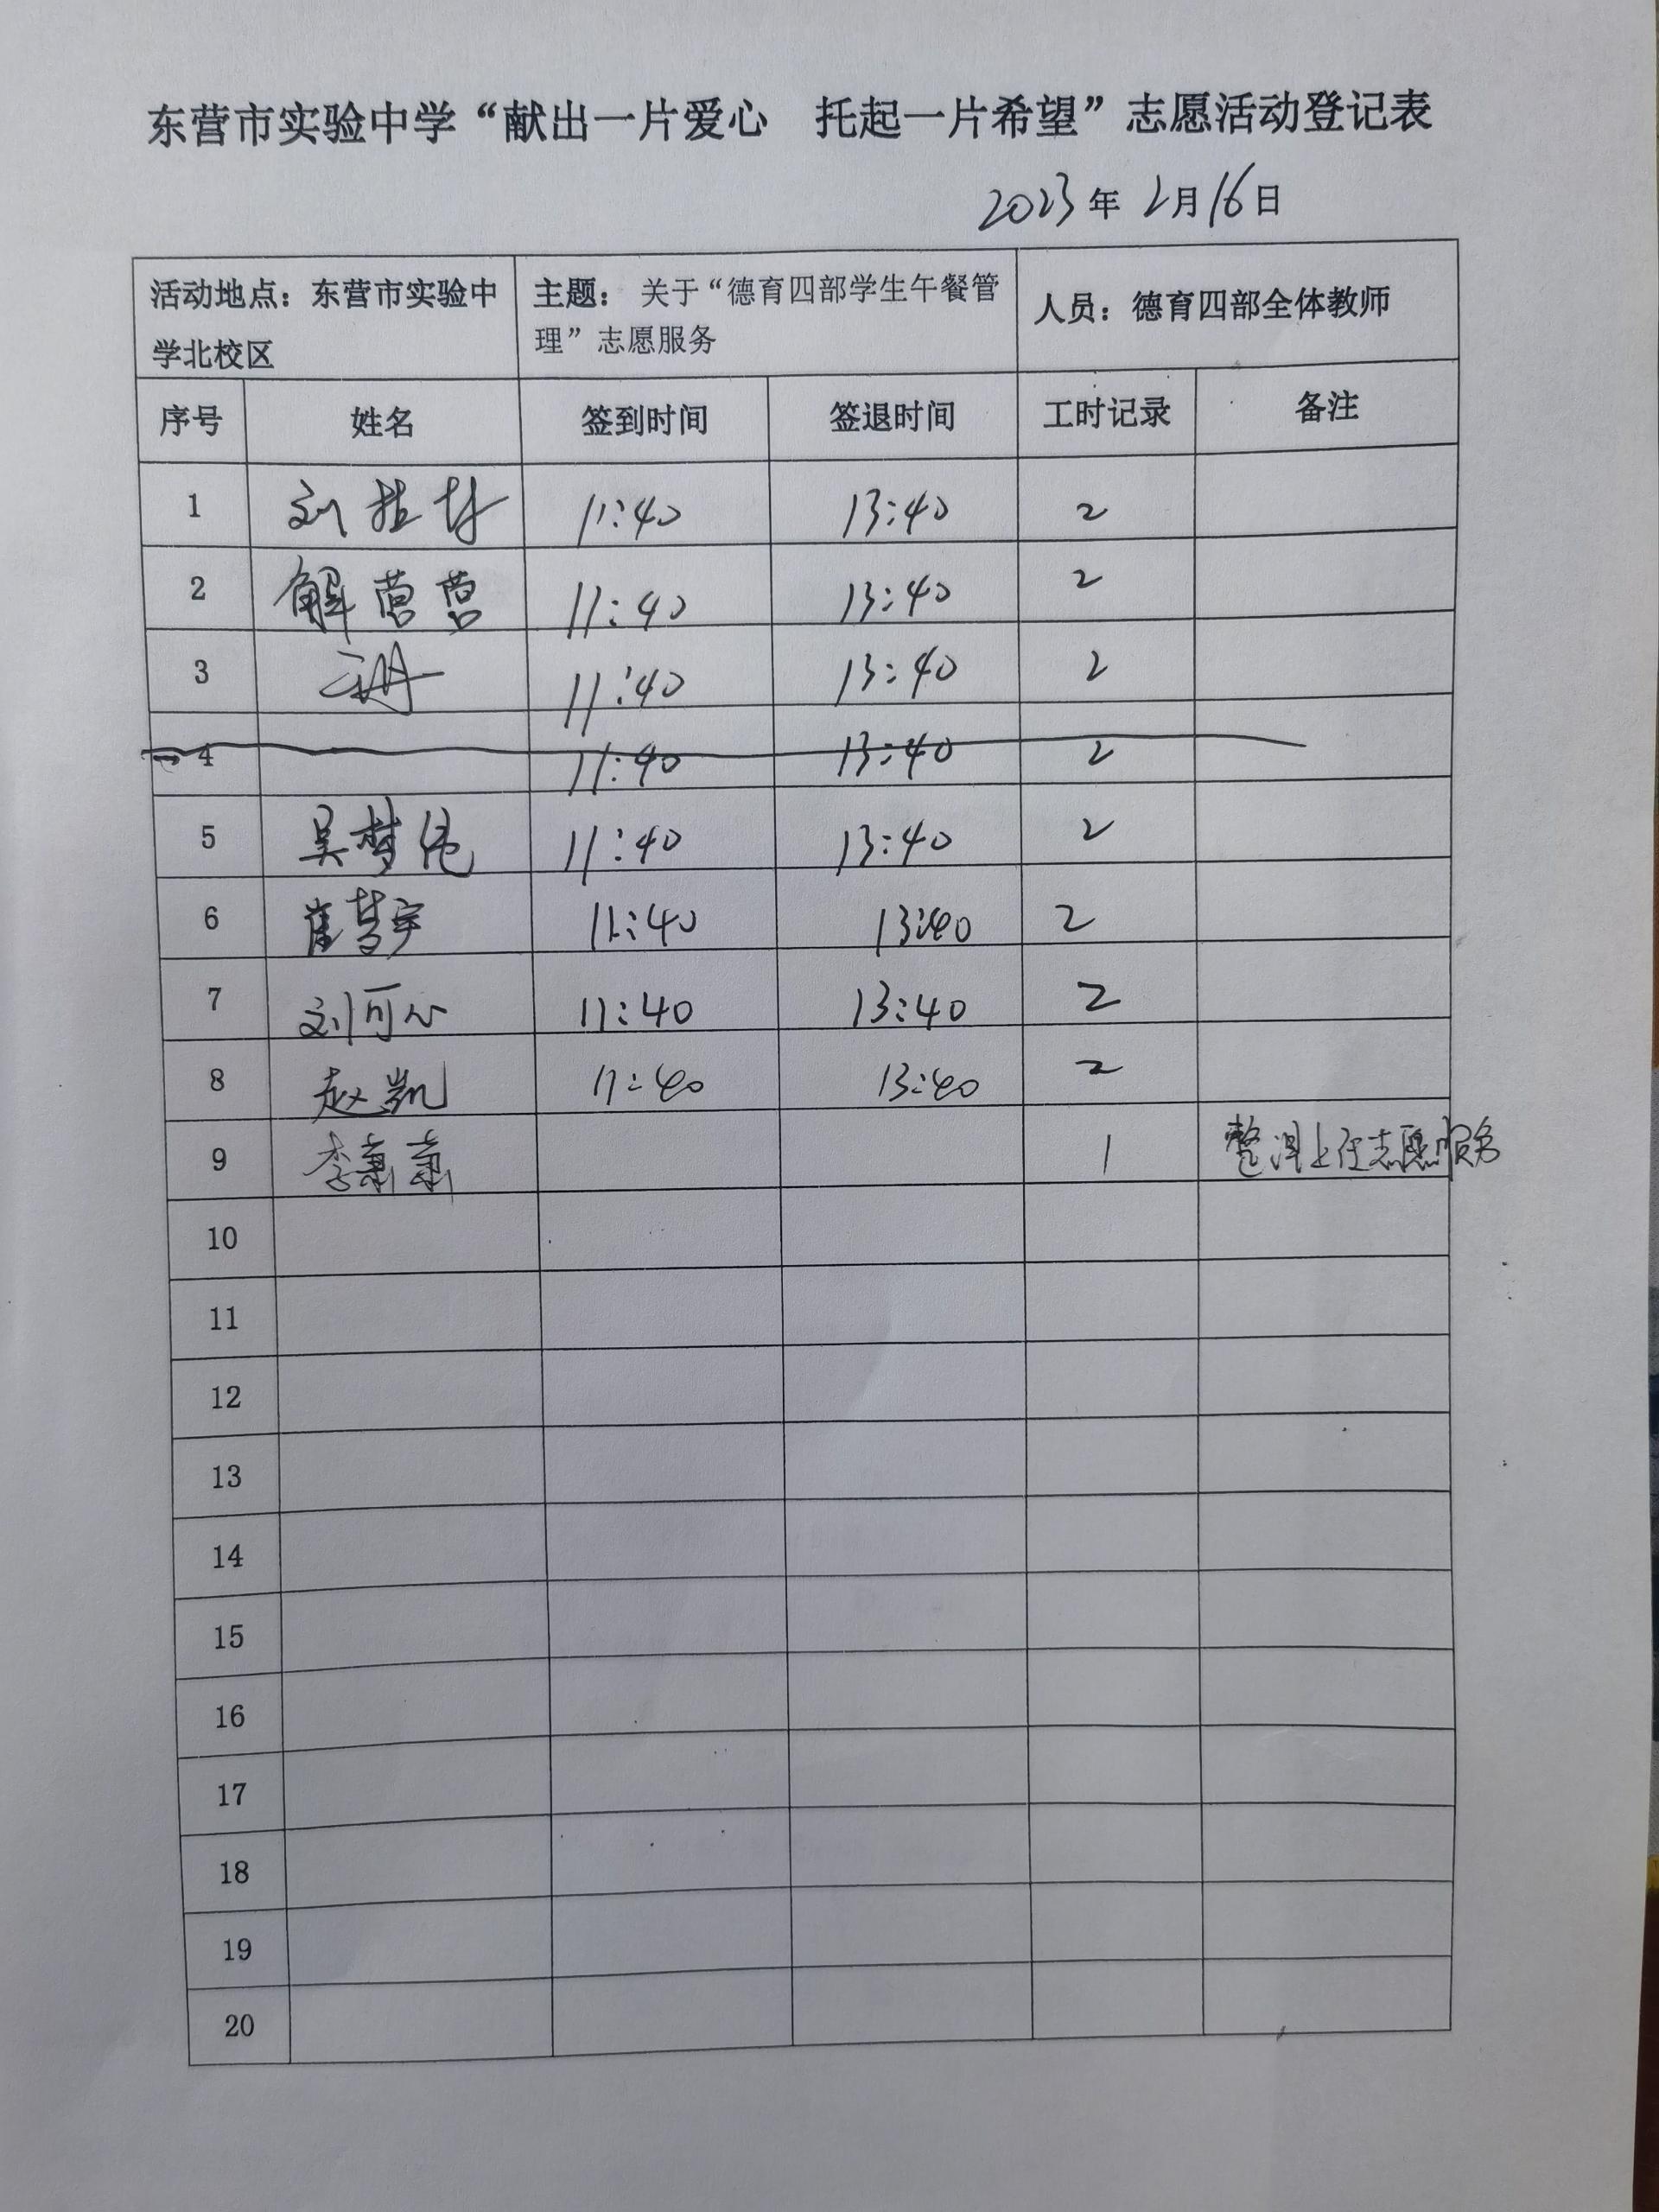 东营市实验中学“献出一片爱心　托起一片希望”志愿活动登记表
2023年 2月16日
活动地点：东营市实验中学北校区 主题： 关于“德育四部学生午餐管理”志愿服务 人员：德育四部全体教师
序号 姓名 签到时间 签退时间 工时记录 备注
1 刘 11:40 13:40 2
2 解营营 11:40 13:40 2
3 11:40 13:40 2
4 11:40 13:40 2
5 吴梦 11:40 13:40 2
6 崔慧宇 11:40 13:40 2
7 刘可心 11:40 13:40 2
8 赵凯 11:40 13:40 2
9 李萧萧 1 整理上传志愿服务
10
11
12
13
14
15
16
17
18
19
20